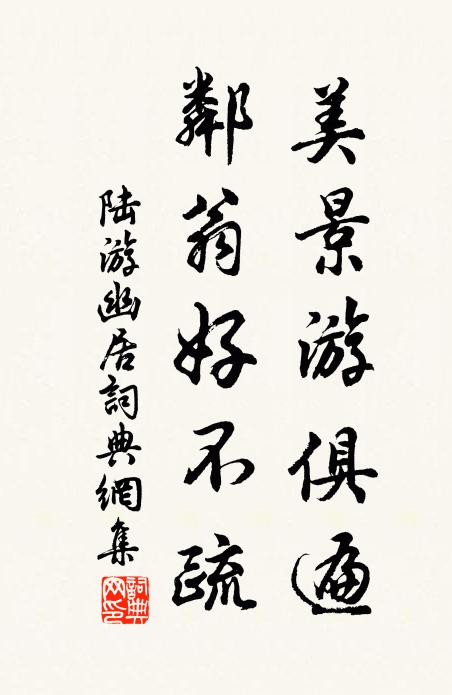 美景游俱遍
鄰翁好不疏
陆游幽居詞典網集
詞典网印